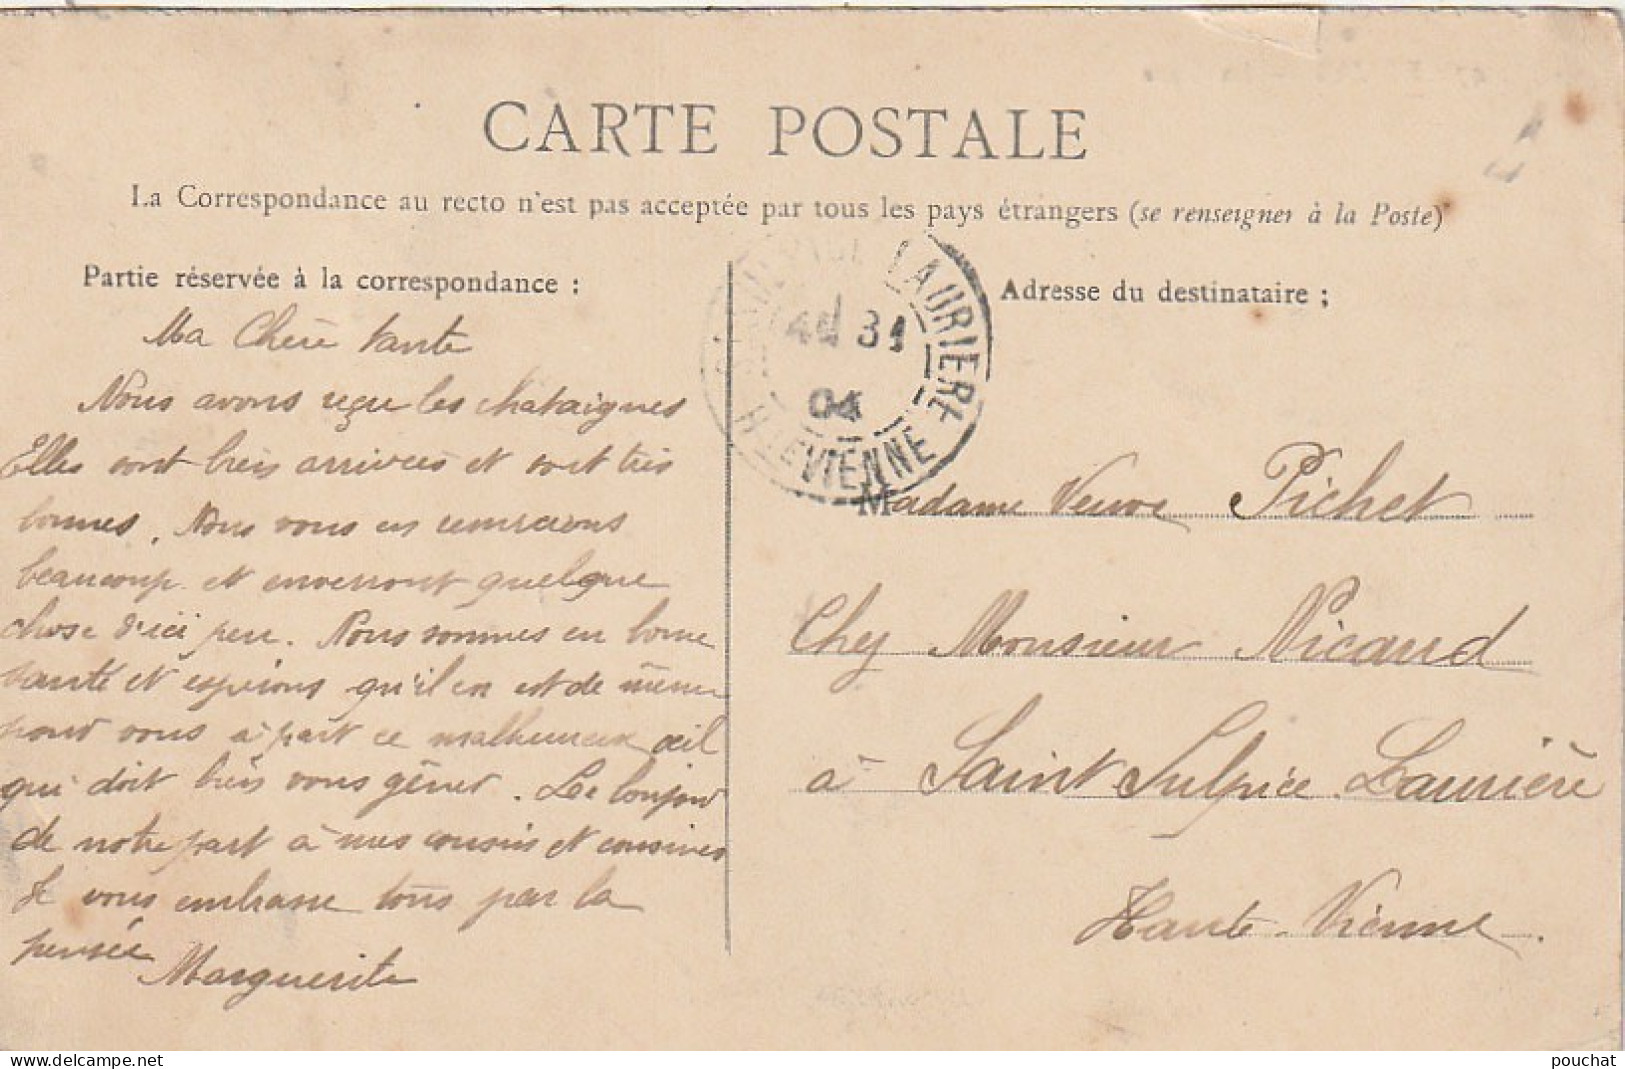 CARTE POSTALE
La Correspondance au recto n'est pas acceptée par tous les pays étrangers (se renseigner à la Poste)
Partie réservée à la correspondance :
Ma Chère tante
Nous avons reçu les chataignes
Elles sont bien arrivées et sont très
bonnes. Nous vous en remercions
beaucoup et enverront quelque
chose d'ici peu. Nous sommes en bonne
santé et espérons qu'il en est de même
pour vous à part ce malheureux œil
qui doit bien vous gêner. Le bonjour
de notre part à mes cousins et cousines
Je vous embrasse tous par la
pensée Marguerite
LAURIERE
31
04
HTE VIENNE
Adresse du destinataire :
Madame Veuve Pichet
Chez Monsieur Nicaud
à Saint Sulpice Laurière
Haute-Vienne.
pouchat